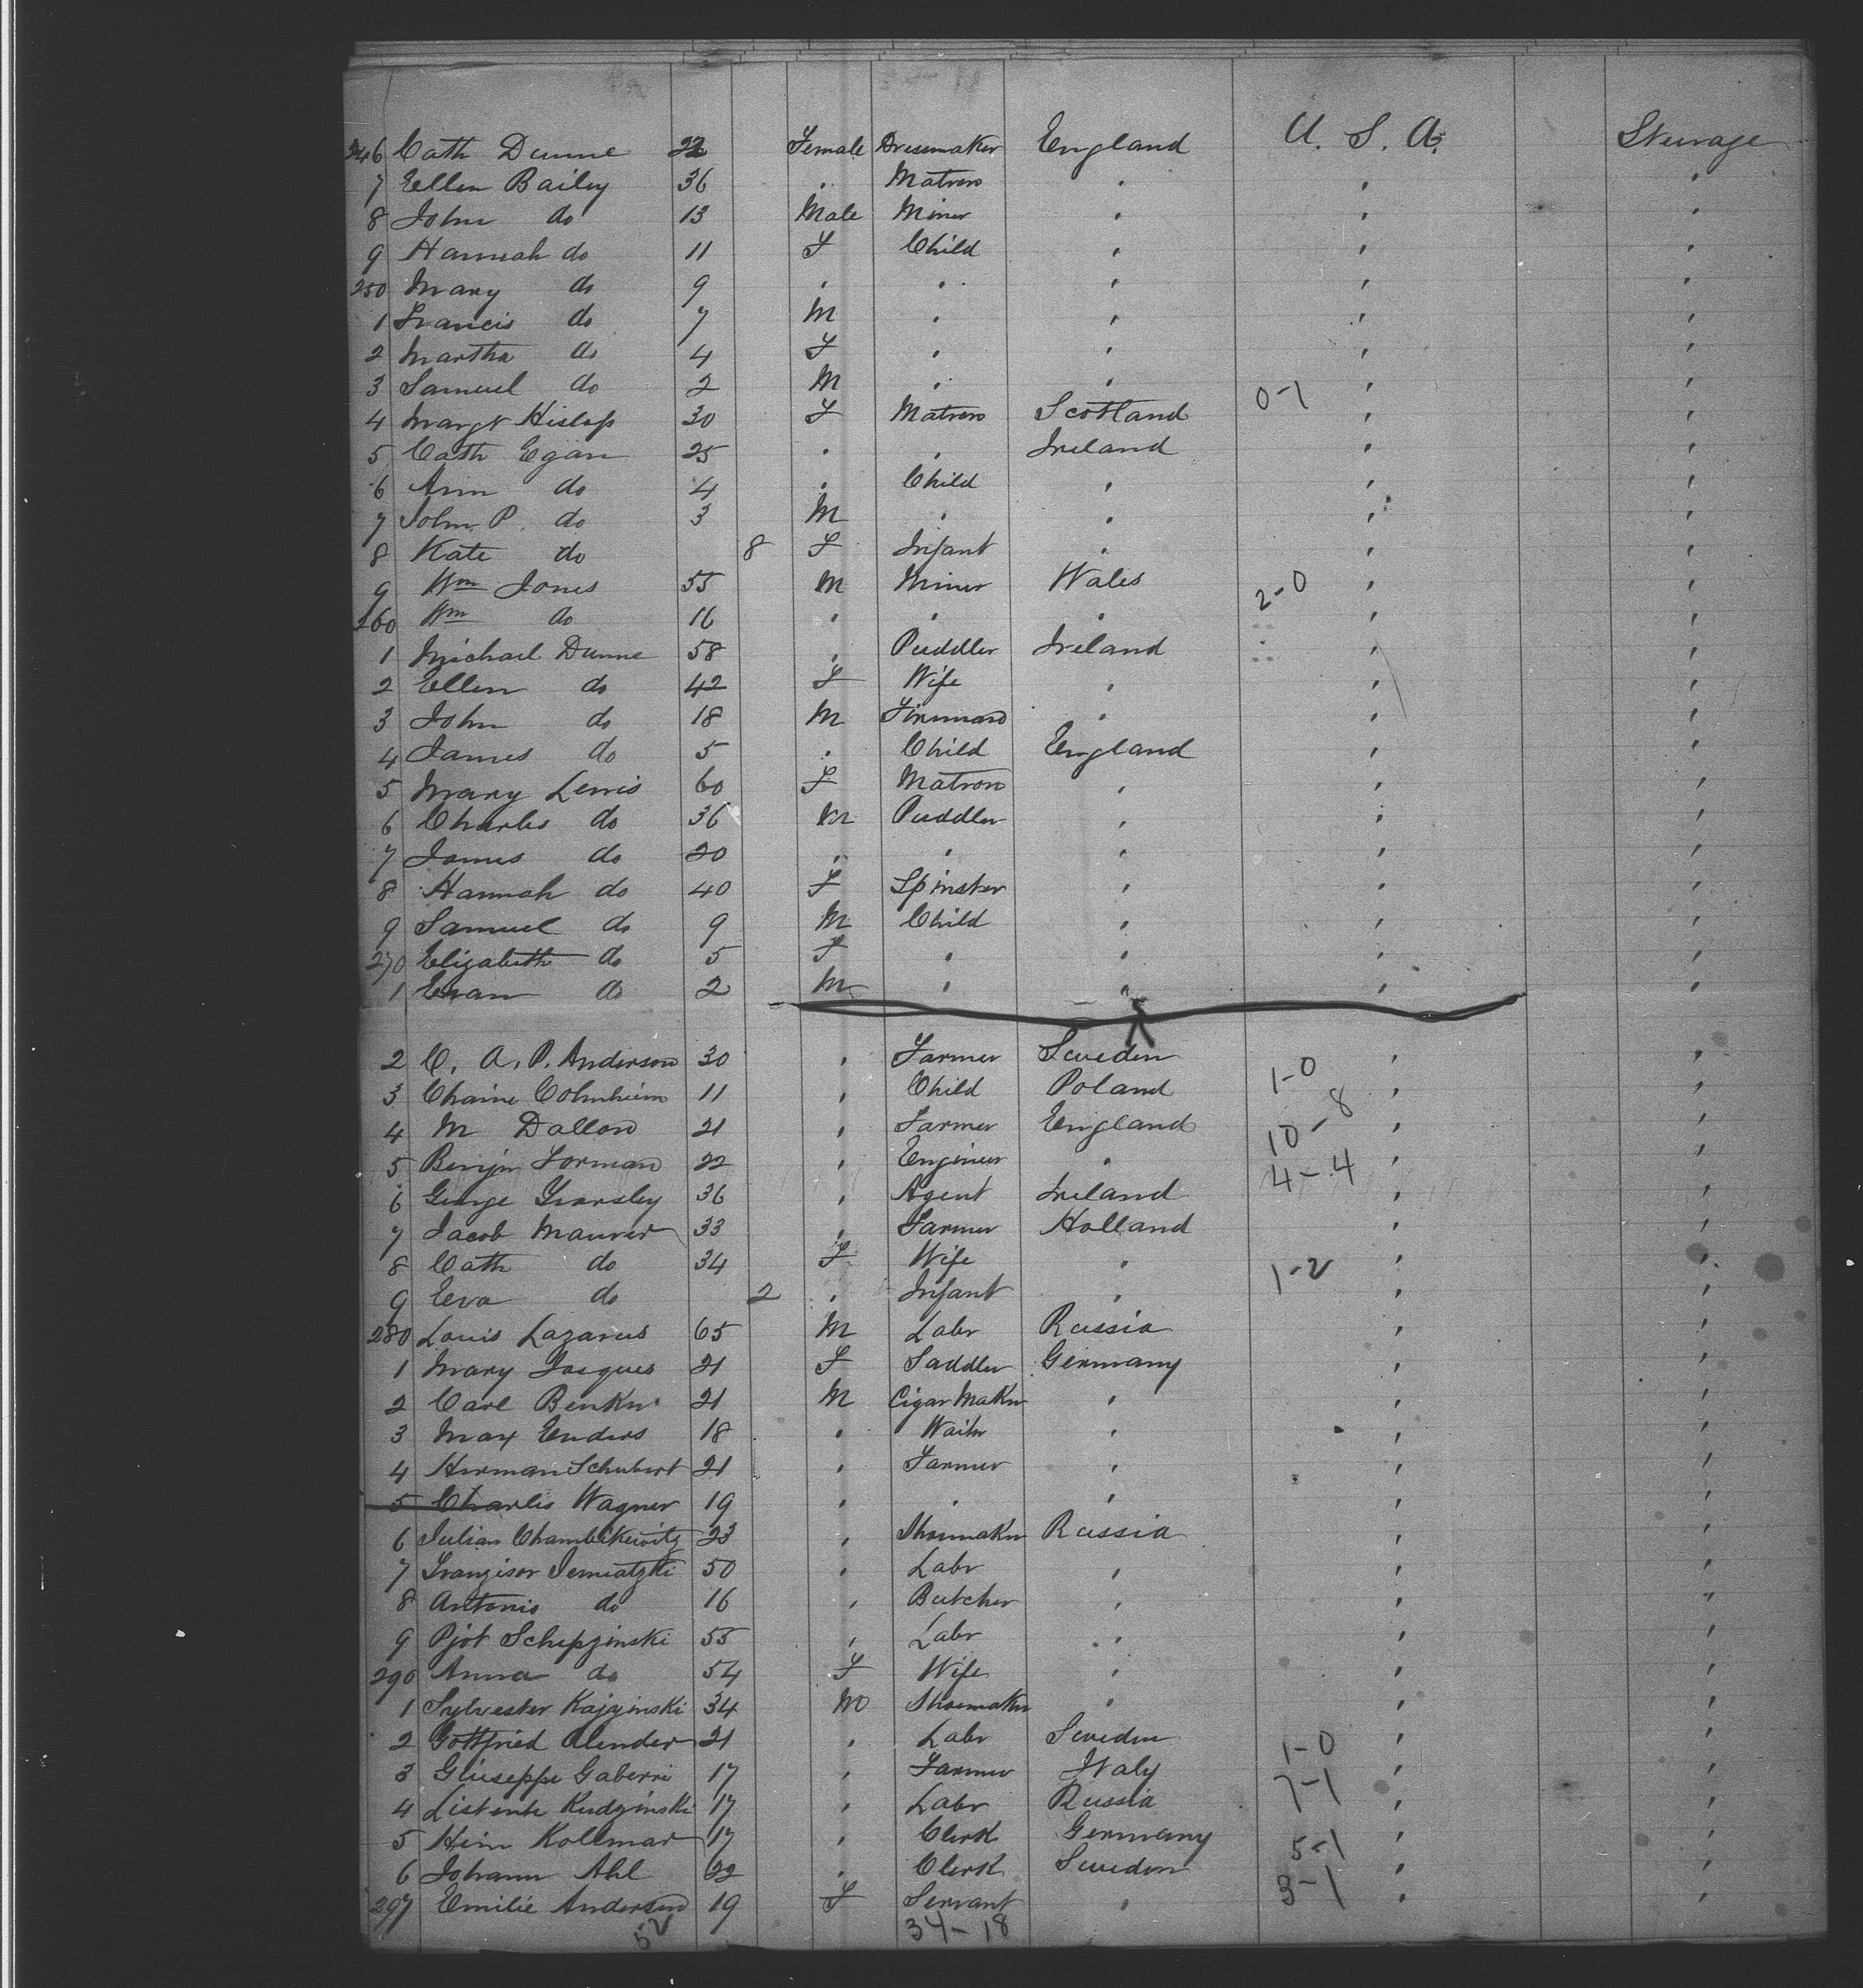 246 Cath Dunne 22 Female Dressmaker England U. S. A. Steerage
7 Ellen Bailey 36 " Matron " " "
8 John do 13 Male Miner " " "
9 Hannah do 11 F Child " " "
250 Mary do 9 " " " " "
1 Francis do 7 M " " " "
2 Martha do 4 F " " " "
3 Samuel do 2 M " " " "
4 Margt Hislop 30 F Matron Scotland 0-1 " "
5 Cath Egan 25 " " Ireland " "
6 Ann do 4 " Child " " "
7 John P. do 3 M " " " "
8 Kate do 8 F Infant " " "
9 Wm Jones 55 M Miner Wales 2-0 " "
260 Wm do 16 " " " " "
1 Michael Dunne 58 " Puddler Ireland " "
2 Ellen do 42 F Wife " " "
3 John do 18 M Fireman " " "
4 James do 5 " Child England " "
5 Mary Lewis 60 F Matron " " "
6 Charles do 36 M Puddler " " "
7 James do 20 " " " " "
8 Hannah do 40 F Spinster " " "
9 Samuel do 9 M Child " " "
270 Elizabeth do 5 F " " " "
1 Evan do 2 M " " " "
2 C. A. P. Anderson 30 " Farmer Sweden 1-0 " "
3 Chaine Cohnheim 11 " Child Poland " "
4 M Dallon 21 " Farmer England 10-8 " "
5 Benjn Forman 22 " Engineer " 4-4 " "
6 George Yearsley 36 " Agent Ireland " "
7 Jacob Maurer 33 " Farmer Holland " "
8 Cath do 34 F Wife " 1-2 " "
9 Eva do 2 " Infant " " "
280 Louis Lazarus 65 M Labr Russia " "
1 Mary Jacques 21 F Saddler Germany " "
2 Carl Benker 21 M Cigar Maker " " "
3 Max Enders 18 " Waiter " " "
4 Herman Schubert 21 " Farmer " " "
5 Charles Wagner 19 " " " " "
6 Julian Chambikewitz 23 " Shoemaker Russia " "
7 Franzisor Semiatzki 50 " Labr " " "
8 Antonio do 16 " Butcher " " "
9 Pjot Schepzinski 55 " Labr " " "
290 Anna do 54 F Wife " " "
1 Sylvester Kajzinski 34 M Shoemaker " " "
2 Gottfried Alender 21 " Labr Sweden 1-0 " "
3 Giuseppe Gaberri 17 " Farmer Italy 7-1 " "
4 Kudzinski 17 " Labr Russia " "
5 Hein Kollmar 17 " Clerk Germany 5-1 " "
6 Johann Ahl 22 " Clerk Sweden 3-1 " "
297 Emilie Anderson 19 F Servant " " "
52 34-18